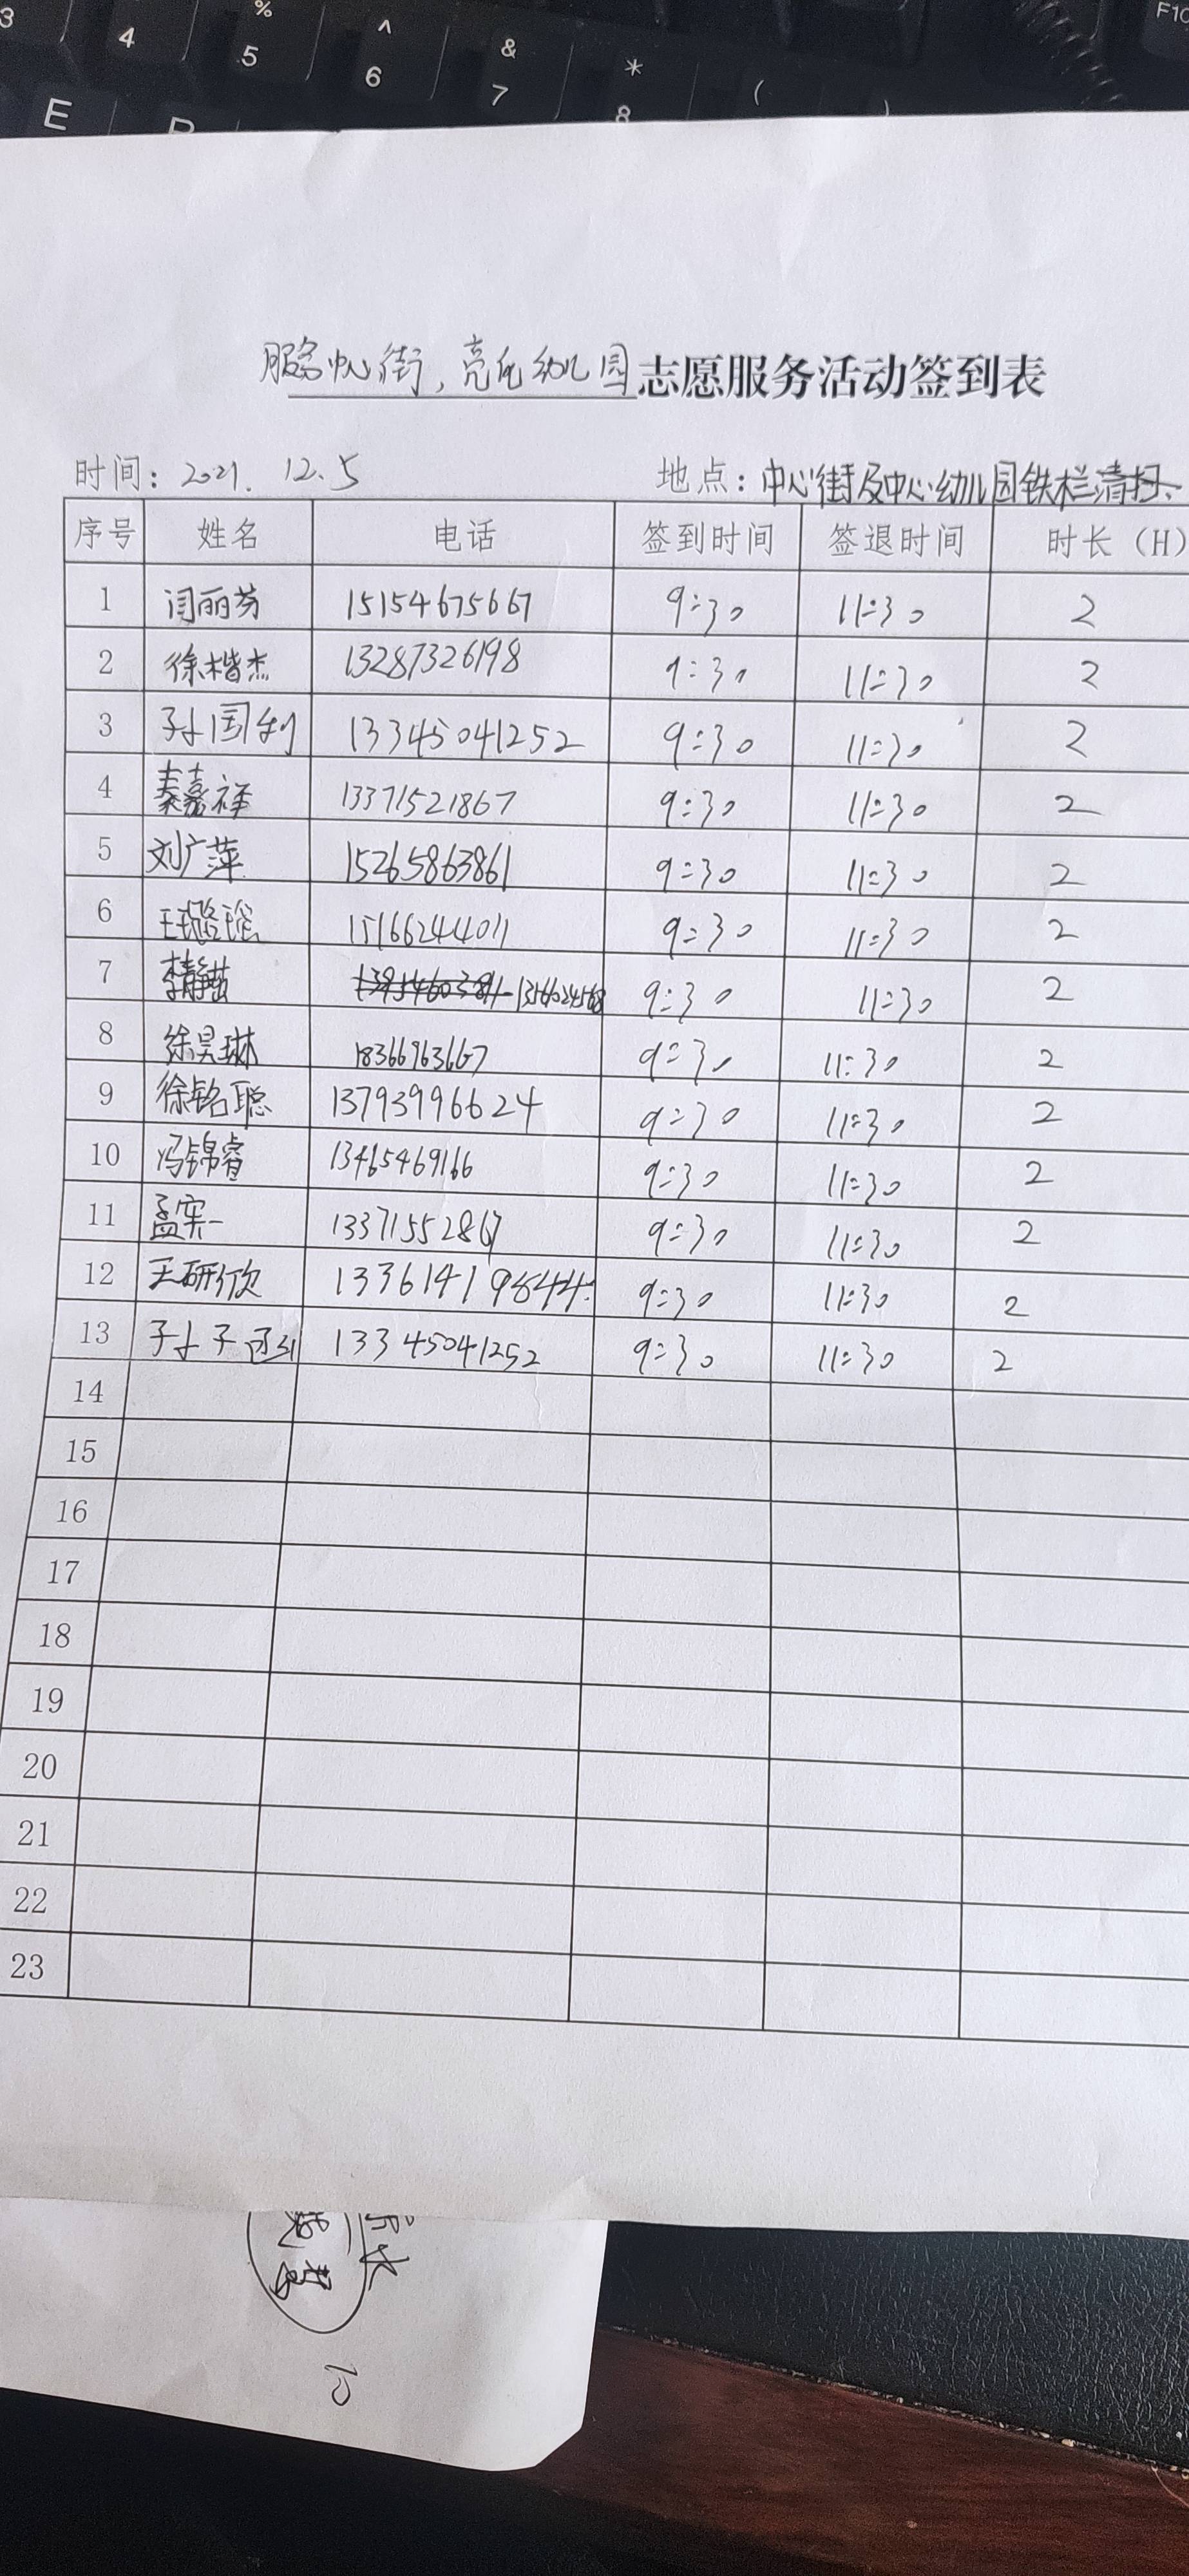 3 4 % 5 ^ 6 & 7 * 8 ( ) F10
E R
服务中心街，亮化幼儿园志愿服务活动签到表
时间：2021.12.5 地点：中心街及中心幼儿园铁栏清扫
序号 姓名 电话 签到时间 签退时间 时长（H）
1 闫丽芬 15154675667 9:30 11:30 2
2 徐楷杰 13287326198 9:30 11:30 2
3 孙国利 13345041252 9:30 11:30 2
4 秦嘉祥 13371521867 9:30 11:30 2
5 刘广萍 15265863861 9:30 11:30 2
6 王璐瑶 15166244011 9:30 11:30 2
7 李静茹 9:30 11:30 2
8 徐昊琳 18366963667 9:30 11:30 2
9 徐铭聪 13793996624 9:30 11:30 2
10 冯锦睿 13465469166 9:30 11:30 2
11 孟宪一 13371552867 9:30 11:30 2
12 王研欣 13361419844 9:30 11:30 2
13 孙子涵 13345041252 9:30 11:30 2
14
15
16
17
18
19
20
21
22
23